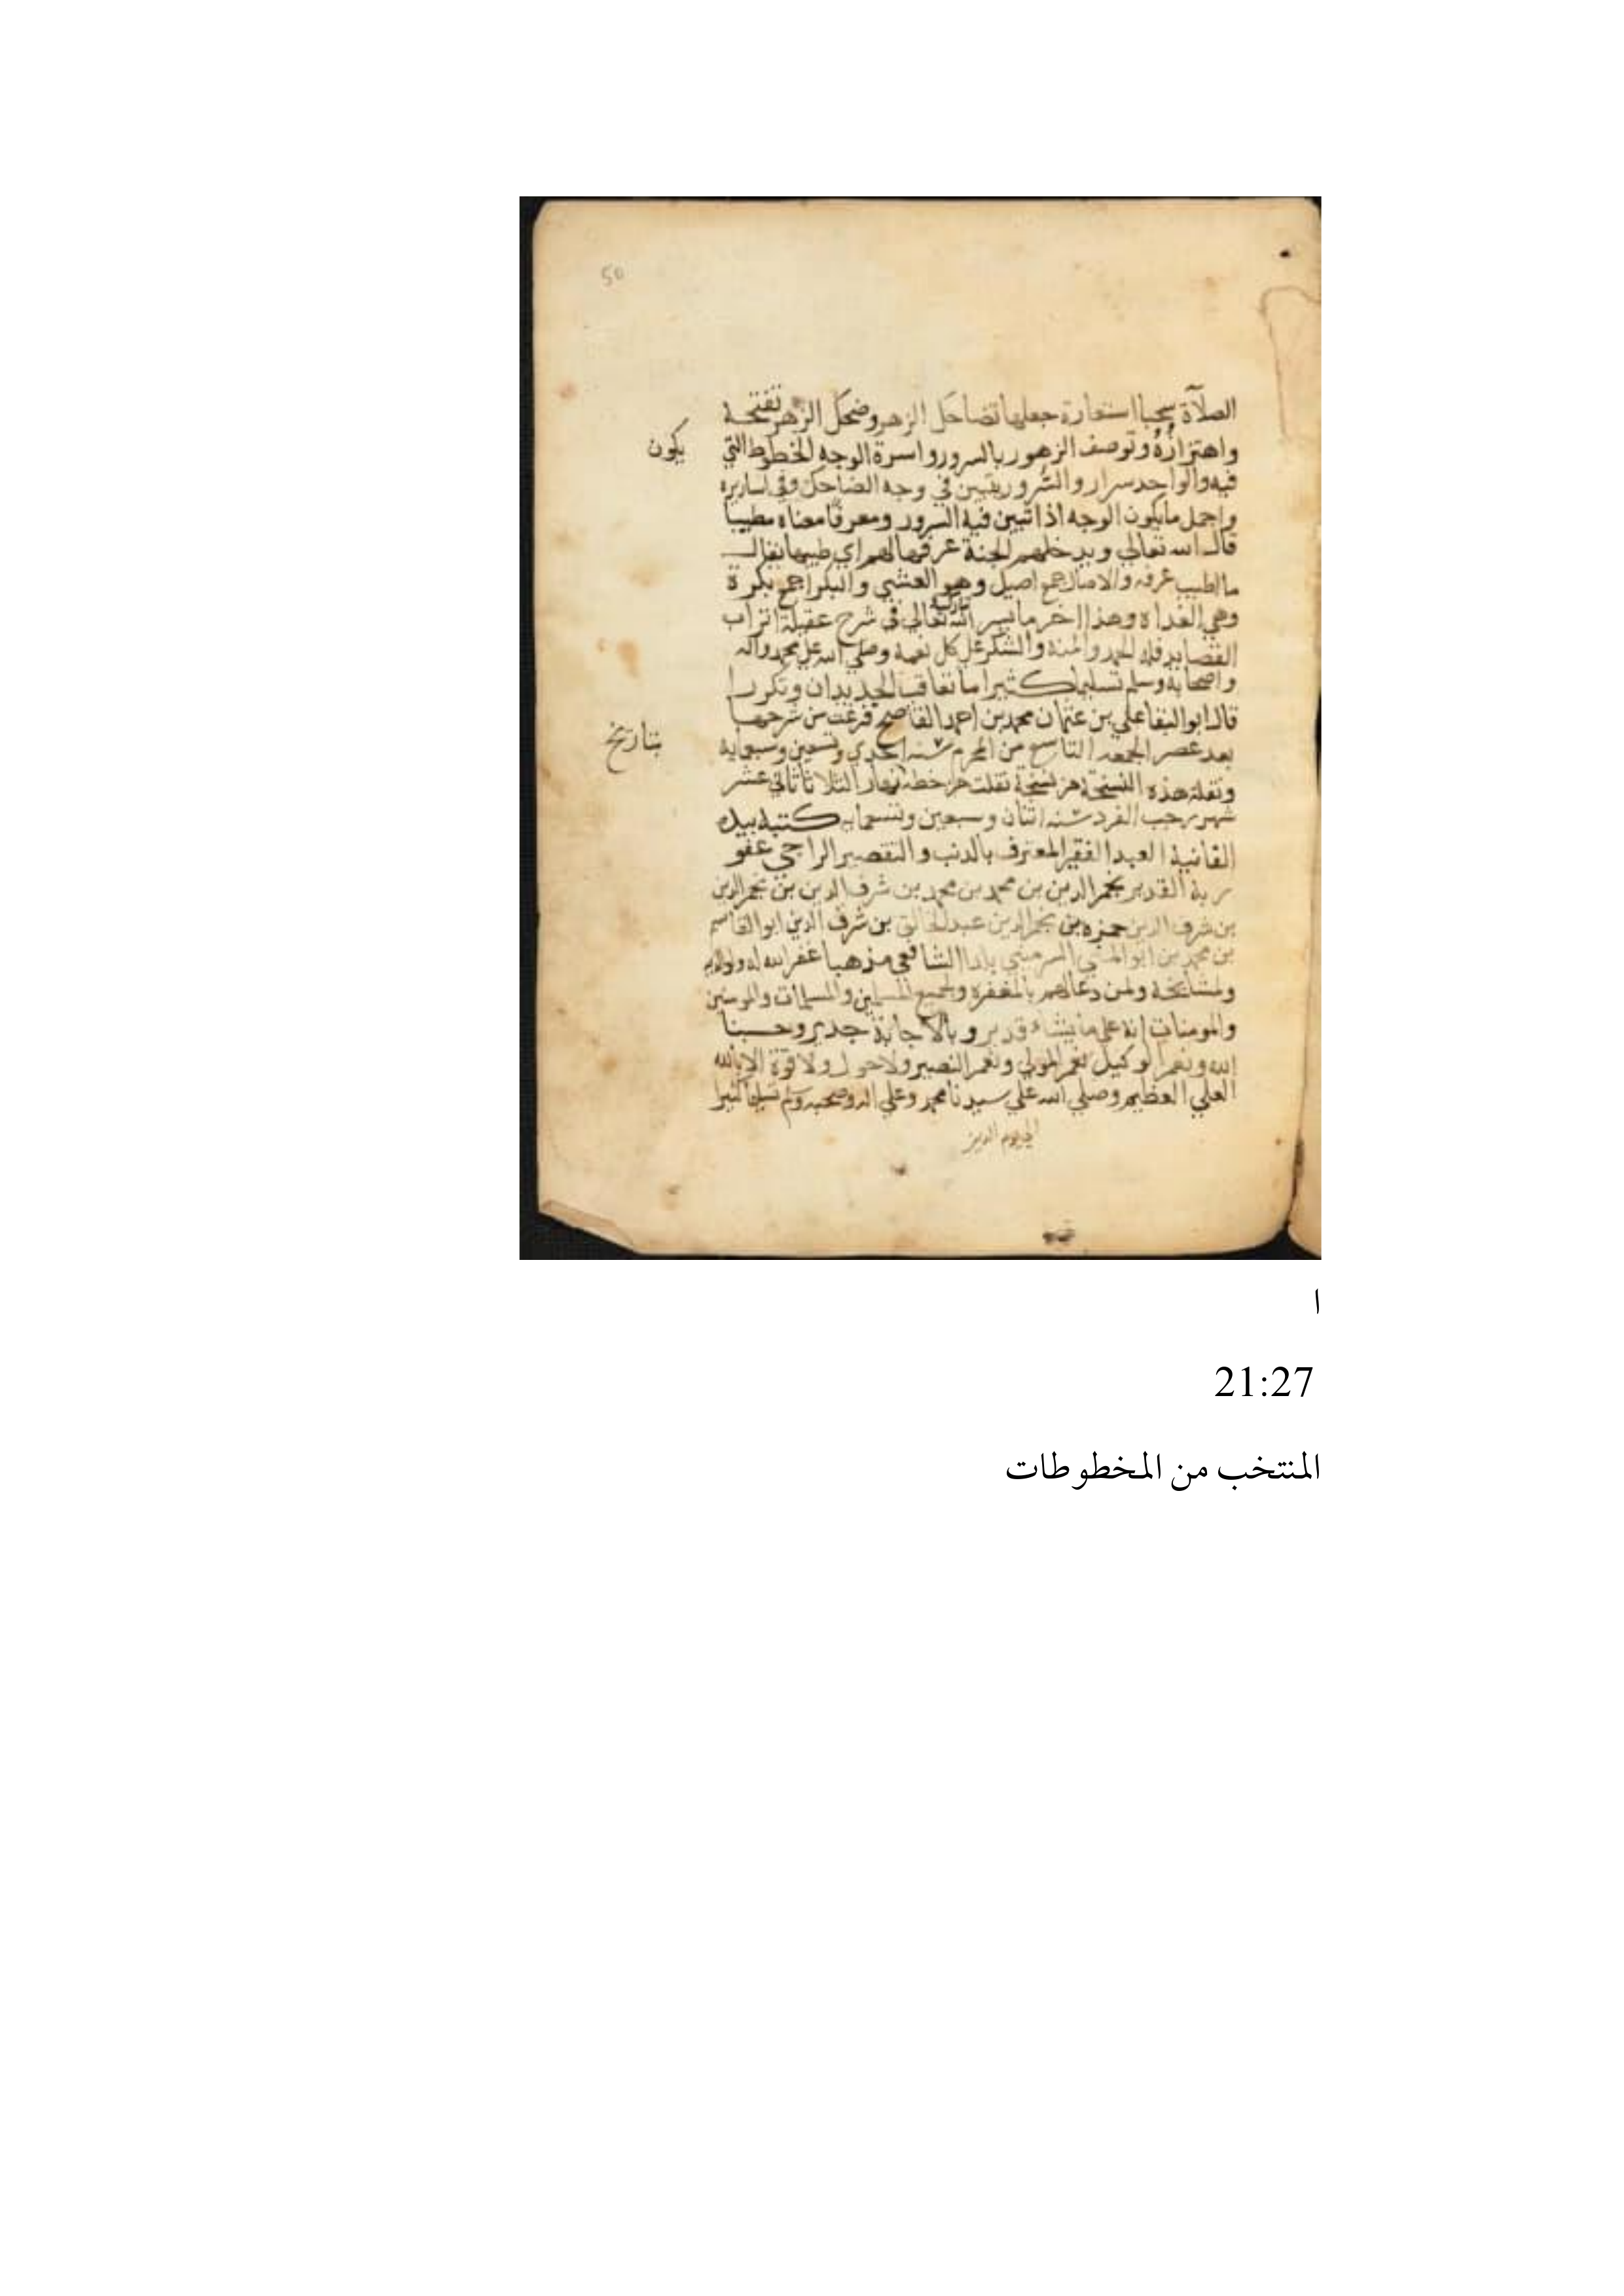 50
الصلاة سحبا استعارة جعلها تضاحك الزهر وضحك الزهر تفتحه
واهتزازه وتوصف الزهور بالسرور واسرة الوجه الخطوط التي
يكون
فيه والواحد سرار والسرور يتبين في وجه الضاحك وفي اساريره
واجمل ما يكون الوجه اذا تبين فيه السرور ومعرفا معناه مطيبا
قال الله تعالي ويدخلهم الجنة عرفها لهم اي طيبها يقال
ما اطيب عرفه والاصال جمع اصيل وهو العشي والبكر جمع بكرة
وهي الغداة وهذا اخر ما يسر الله تعالي في شرح عقيلة اتراب
القصايد فلله الحمد والمنة والشكر علي كل نعمة وصلي الله علي محمد واله
واصحابه وسلم تسليما كثيرا ما تعاقب الجديدان وتكررا
قال ابو البقا علي بن عثمان محمد بن احمد القاصح فرغت من شرحها
بتاريخ
بعد عصر الجمعه التاسع من المحرم سنه احدي وتسعين وسبعماية
ونقلة هذه النسخة من نسخة نقلت من خطه نهار الثلاثا ثاني عشر
شهر رجب الفرد سنه اثنان وسبعين وتسعمايه كتبه بيده
الفانية العبد الفقير المعترف بالذنب والتقصير الراجي عفو
ربه القدير نجم الدين بن محمد بن محمد بن شرف الدين بن نجم الدين
بن شرف الدين حمزه بن نجم الدين عبد الخالق بن شرف الدين ابو القاسم
بن محمد بن ابو المثني السرميني بلدا الشافعي مذهبا غفر الله له ولوالديه
ولمشايخه ولمن دعا لهم بالمغفره ولجميع المسلمين والمسلمات والمومنين
والمومنات انه علي ما يشاء قدير وبالاجابة جدير وحسبنا
الله ونعم الوكيل نعم المولي ونعم النصير ولا حول ولا قوة الا بالله
العلي العظيم وصلي الله علي سيدنا محمد وعلي اله وصحبه وسلم تسليما كثيرا
الي يوم الدين
ا
21:27
المنتخب من المخطوطات